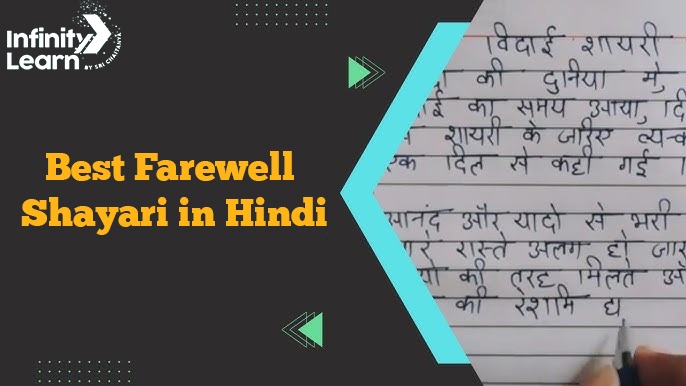 Infinity
Learn
BY SRI CHAITANYA
Best Farewell
Shayari in Hindi
विदाई शायरी
की दुनिया मे,
का समय आया, दि
शायरी के जरिए
एक दिल से कही गई
आनंद और यादो से भरी
रास्ते अलग हो
की तरह मिलते औ
की रेशामि ध